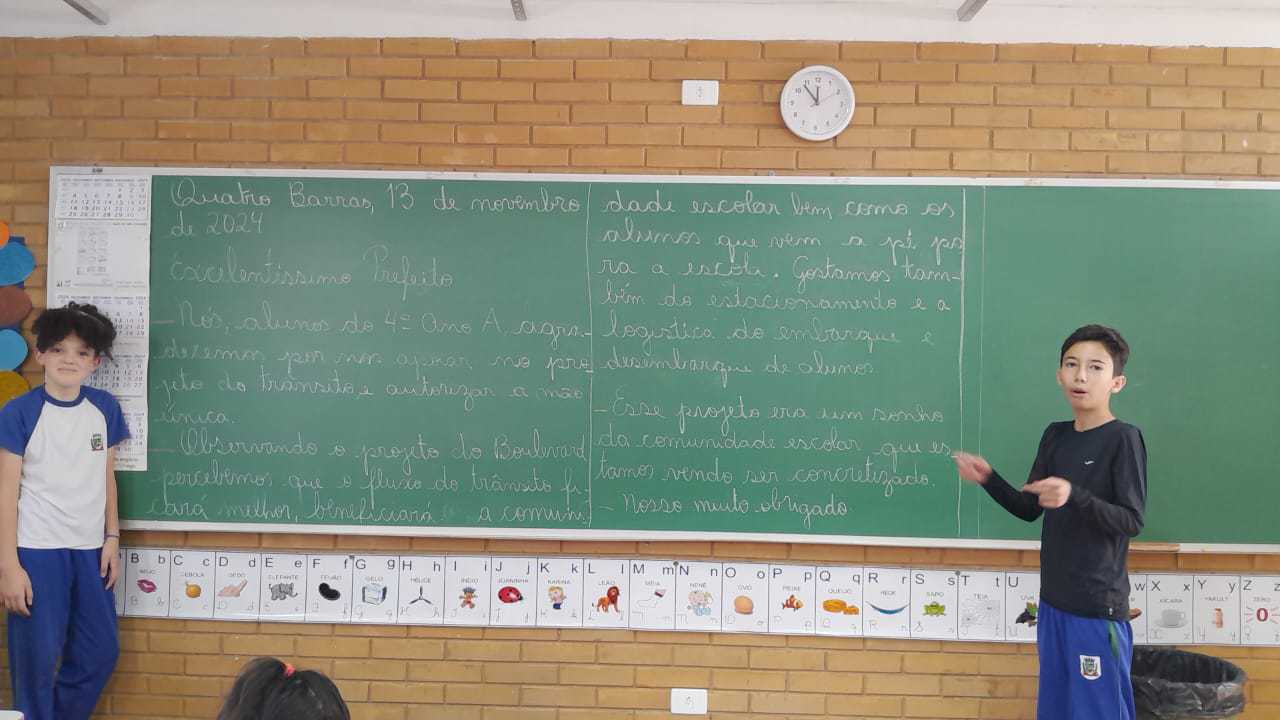 Quatro Barras, 13 de novembro
de 2024
Excelentíssimo Prefeito
- Nós, alunos do 4º Ano A, agra-
decemos por nos apoiar no pro
jeto do trânsito e autorizar a mão
única.
- Observando o projeto do Boulevard
percebemos que o fluxo do trânsito fi-
cará melhor, beneficiará a comuni-
dade escolar bem como os
alunos que vem a pé pa
ra a escola. Gostamos tam-
bém do estacionamento e a
logística do embarque e
desembarque de alunos.
- Esse projeto era um sonho
da comunidade escolar que es-
tamos vendo ser concretizado.
- Nosso muito obrigado.
B b
BEIJO
C c
CEBOLA
D d
DEDO
E e
ELEFANTE
F f
FEIJÃO
G g
GELO
H h
HÉLICE
I i
ÍNDIO
J j
JOANINHA
K k
KARINA
L l
LEÃO
M m
MEIA
N n
NENÊ
O o
OVO
P p
PEIXE
Q q
QUEIJO
R r
REDE
S s
SAPO
T t
TEIA
U
UVA
W
X x
XÍCARA
Y y
YAKULT
Z z
ZERO